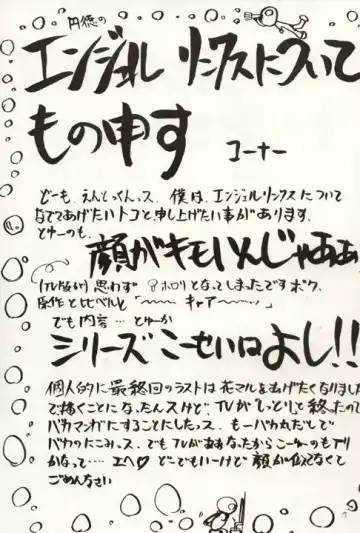 円徳の
エンジェル リンクスについて
もの申す
コーナー
どーも、えんとっくんっス、僕は、エンジェルリンクスについて
なでてあげたいトコと申し上げたい事があります、
とゆーのも、
顔がキモいんじゃあぁ
(TV版が) 思わず ホロリとなってしまったですボク、
原作と比べルと「〜〜〜 キャァ〜〜〜」
でも内容… とゅーか
シリーズこーせいはよし!!
個人的に最終回のラストは花マルをあげたくなりました
で描くことになったんスけど、TVが“しっとり”と終ったので
バカマンガにすることにしたっス、もーバカ丸だしで
バカのにこみっス、でもTVがああなったからこーゆーのもアリ
かなって…… エヘ♡ どーでもいーけど 顔が似てなくて
ごめんなさい